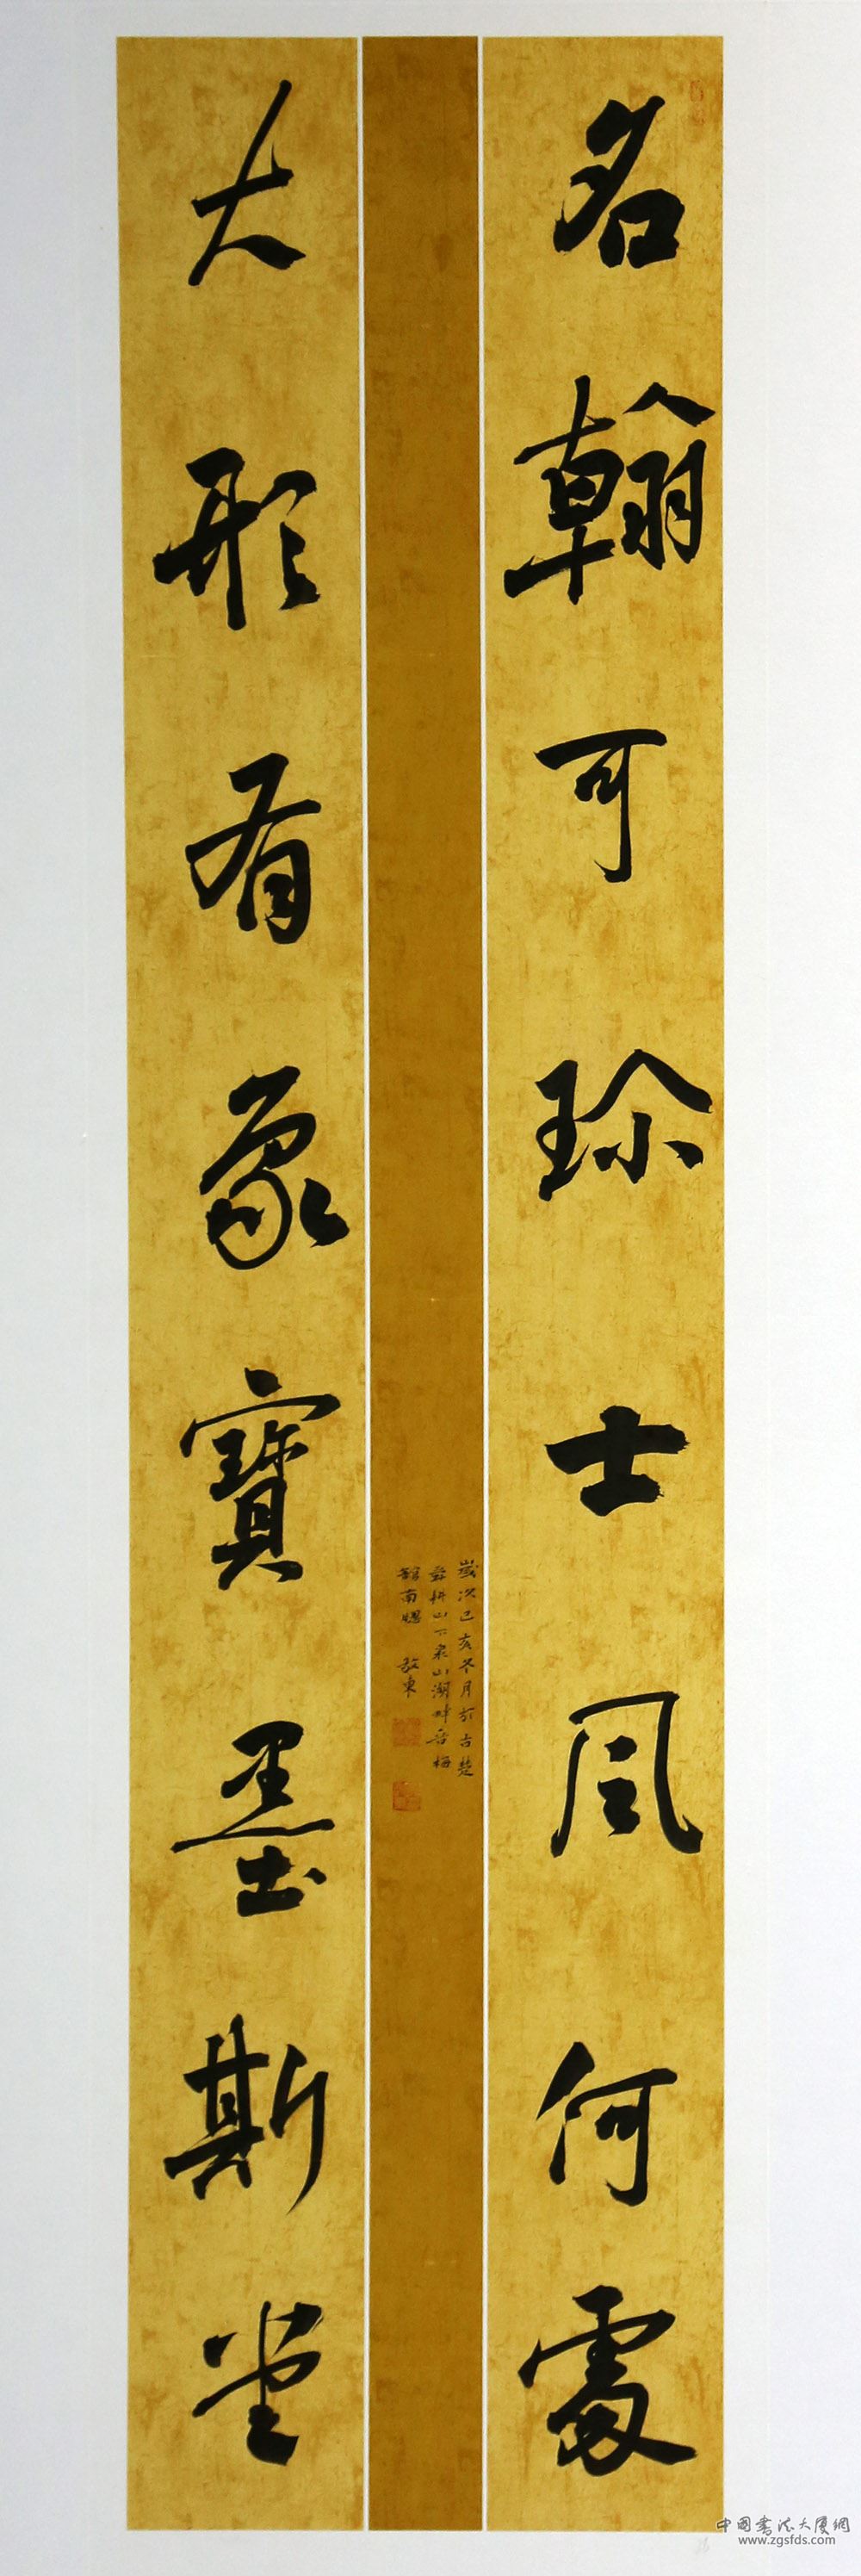 名翰可珍士風何處
大形有象寶墨斯堂
歲次己亥冬月於古楚
舜耕山下泉山湖畔香梅
館南窗 敬東
中國書法大廈網
www.zgsfds.com